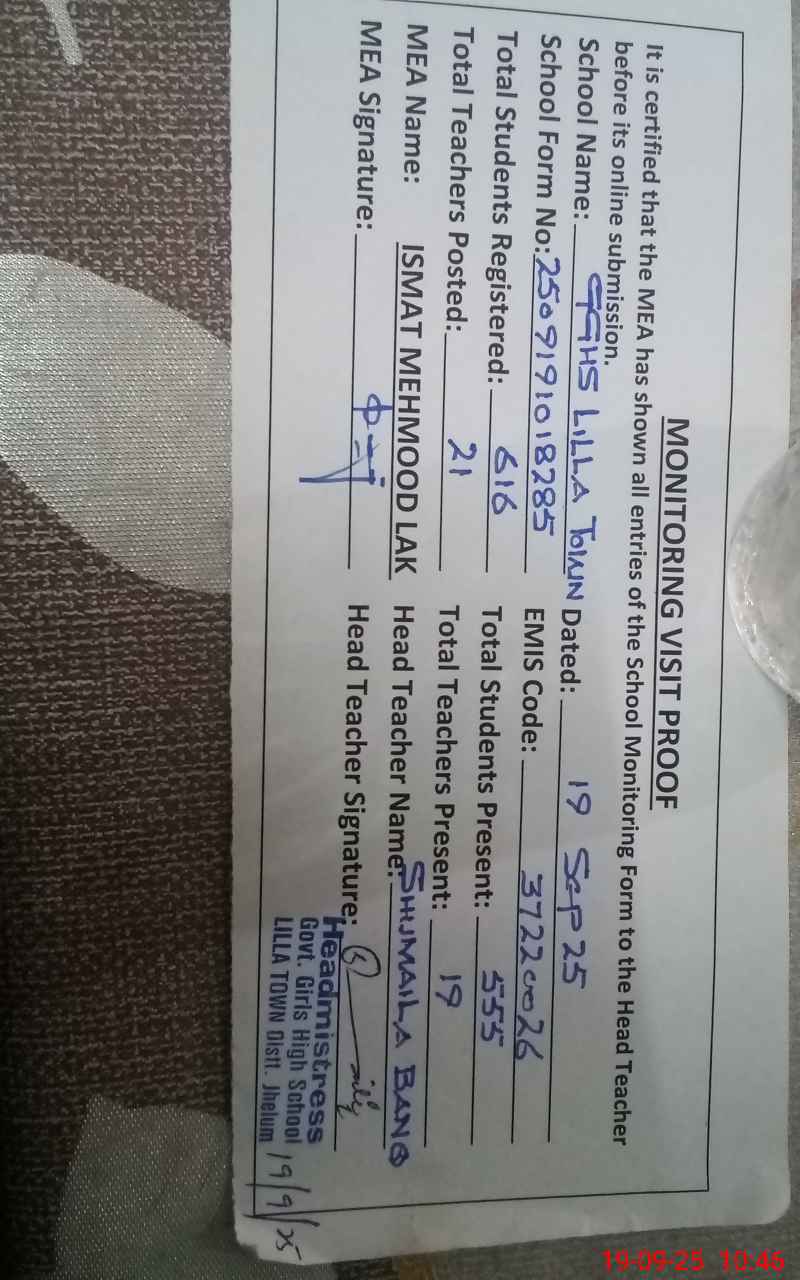 MONITORING VISIT PROOF
It is certified that the MEA has shown all entries of the School Monitoring Form to the Head Teacher
before its online submission.
School Name: GGHS LILLA TOWN Dated: 19 Sep 25
School Form No: 250919101 8285 EMIS Code: 37220026
Total Students Registered: 616 Total Students Present: 555
Total Teachers Posted: 21 Total Teachers Present: 19
MEA Name: ISMAT MEHMOOD LAK Head Teacher Name: SHUMAILA BANO
MEA Signature: Head Teacher Signature:
Headmistress
Govt. Girls High School
LILLA TOWN Distt. Jhelum 19/9/25
19-09-25 10:46